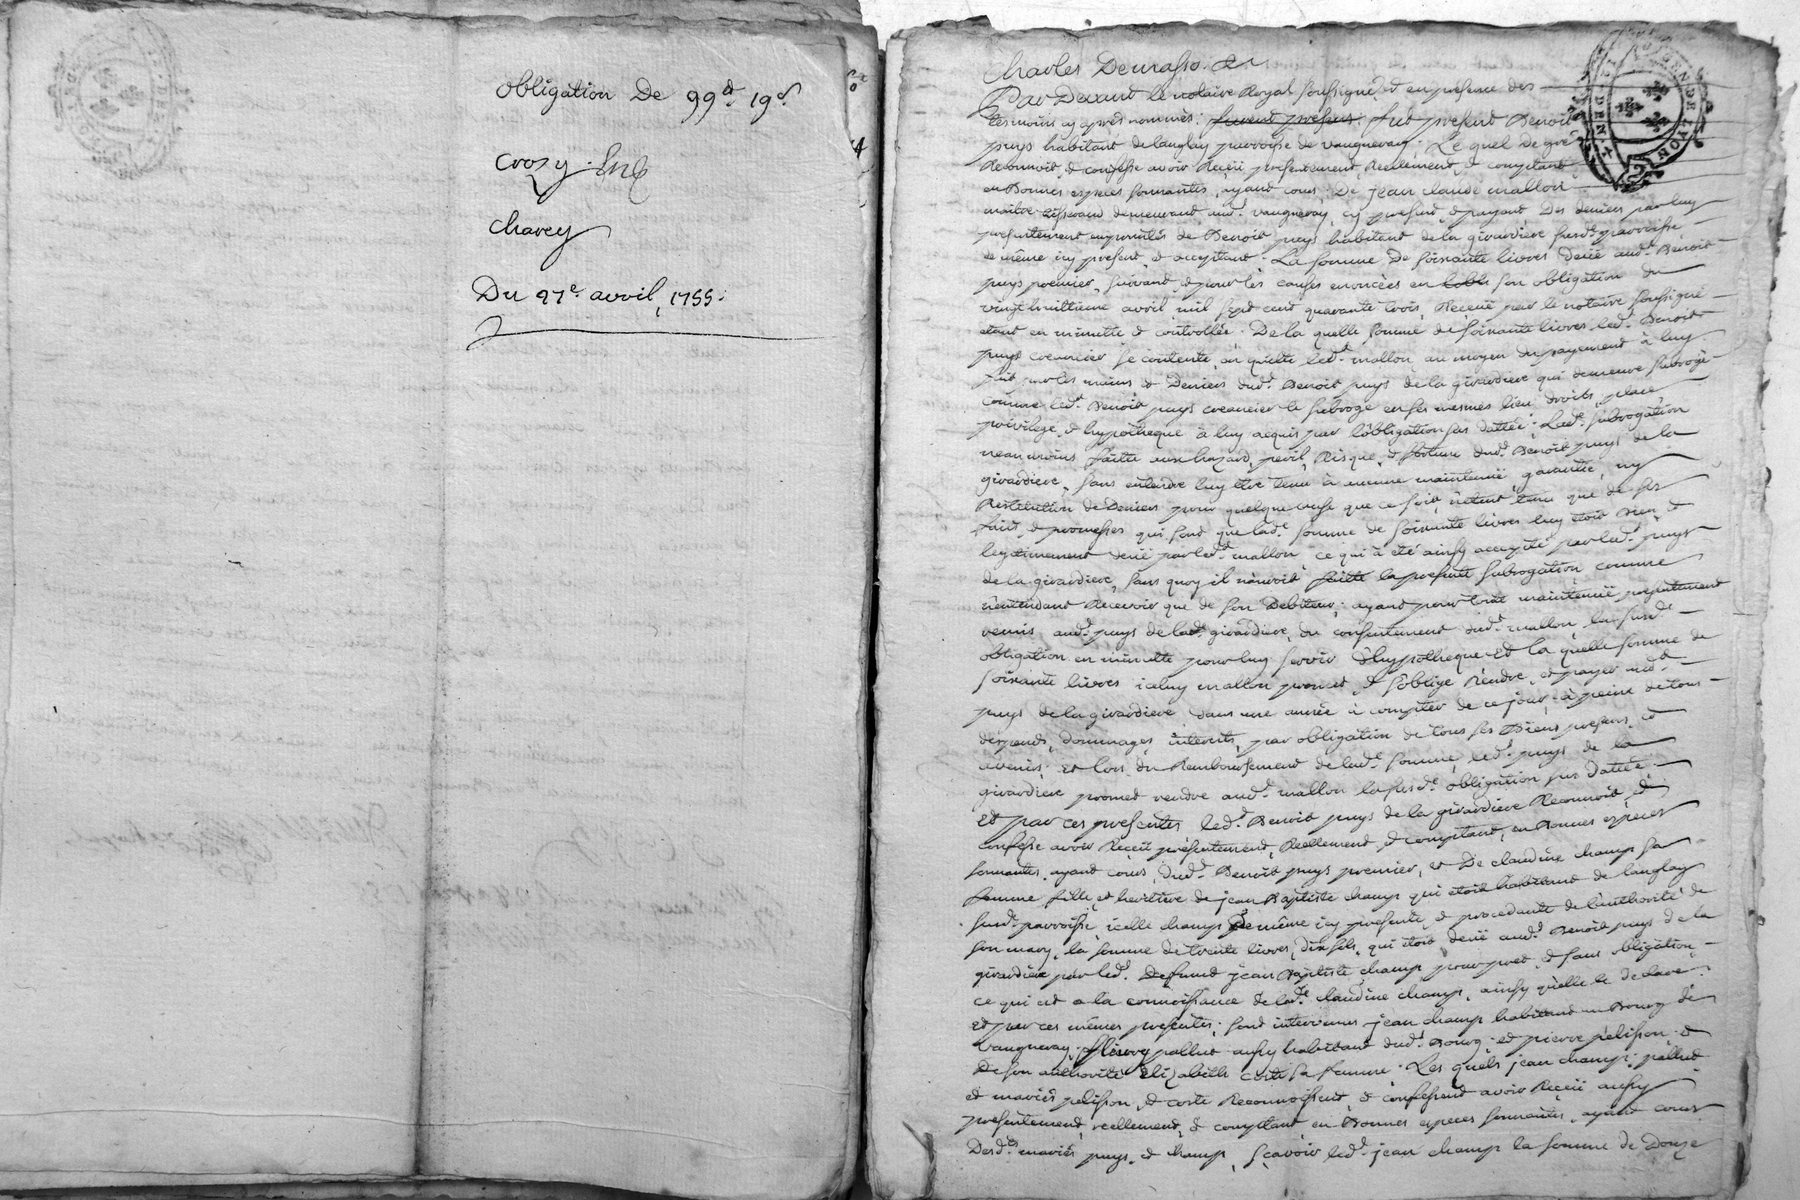 obligation De 99ᵗᵗ 19ˢ
Croзy
Chavey
Du 27ᵉ avril, 1755.
Charles Demasso
Par Devant le notaire Royal soussigné, et en presence des
tesmoins cy apres nommés: furent presens fut present Benoit
puys habitant de langlay parroisse de vaugneray. Lequel de gré
Reconnoit, & confesse avoir Receü presentement, Reelement, & comptant
en Bonnes especes sonnantes, ayant cours. De jean claude mallon
maitre tisserand demeurant aud. vaugneray, cy present, & payant, Des deniers par luy
presentement empruntés de Benoit puys habitant de la girardiere susd. parroisse,
de même icy present, & acceptant. La somme De soixante livres deüe aud. Benoit
puys premier, suivant, & pour les causes enoncées en son obligation du
vingt huittieme avril, mil sept cent quarante trois, Receüe par le notaire soussigné
etant en minutte & controllée. De la quelle somme de soixante livres led. Benoit
puys creancier se contente, en quitte led. mallon, au moyen du payement à luy
fait, par les mains, & Deniers dud. Benoit puys de la girardiere qui demeure subrogé
comme led. Benoit puys creancier le subroge en ses mesmes lieu, droits, place
privilege, & hypotheque à luy acquis par l'obligation sus dattée: Lad. subrogation
neanmoins faitte aux hazard, peril, Risque, & fortune dud. Benoit puys de la
girardiere, sans entendre luy etre tenu à aucune maintenüe, garantie, ny
Restitution de Deniers pour quelque cause que ce soit, n'etant tenu que de ses
faits, & promesses qui sont que lad. somme de soixante livres luy etoit Bien, &
legitimement deüe par led. mallon, ce qui à eté ainsy accepté par led. puys
de la girardiere, sans quoy il n'auroit faitte la presente subrogation comme
n'entendant Recevoir que de son Debiteur; ayant pour toute maintenüe presentement
remis aud. puys de lad. girardiere, du consentement dud. mallon, la susd.
obligation en minutte pour luy servir d'hypotheque. Et la quelle somme de
soixante livres icelluy mallon promet, & s'oblige Rendre, et payer aud.
puys de la girardiere dans une année à compter de ce jour, à peine de tous
despends, dommages, interets, par obligation de tous ses Biens presens, et
avenir: et lors du Remboursement de lad. somme, led. puys de la
girardiere promet rendre aud. mallon la susd. obligation sus dattée.
Et par ces presentes led. Benoit puys de la girardiere Reconnoit, et
confesse avoir Receü presentement, Reellement, & comptant, en Bonnes especes
sonnantes, ayant cours, dud. Benoit puys premier, et De claudine champ sa
femme fille, et heritiere de jean Baptiste champ qui etoit habitant de langlay
susd. parroisse, icelle champ de même icy presente, & procedante de l'authorité de
son mary, la somme de trente livres, dix sols, qui etoit deüe aud. Benoit puys de la
girardiere par led. Defunct jean Baptiste champ pour pret, & sans obligation,
ce qui est a la connoissance de lad. claudine champ, ainsy qu'elle le declare.
Et par ces mêmes presentes, sont intervenus jean champ habitant au Bourg de
vaugneray, fleury pallut aussy habitant dud. Bourg. et pierre pelisson, &
De son authorité Elizabeth coste sa femme. Les quels jean champ, pallut
et mariés pelisson, & coste Reconnoissent, & confessent avoir Receü aussy
presentement, reellement, & comptant en Bonnes especes sonnantes, ayant cours
Desd. mariés puys, & champ, sçavoir led. jean champ la somme de Douze